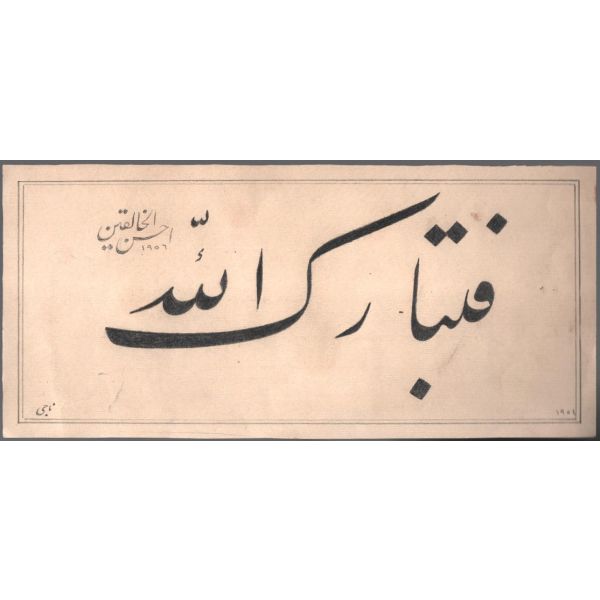 فتبارك الله
احسن الخالقين
١٩٥٦
ناجي
١٩٥٤